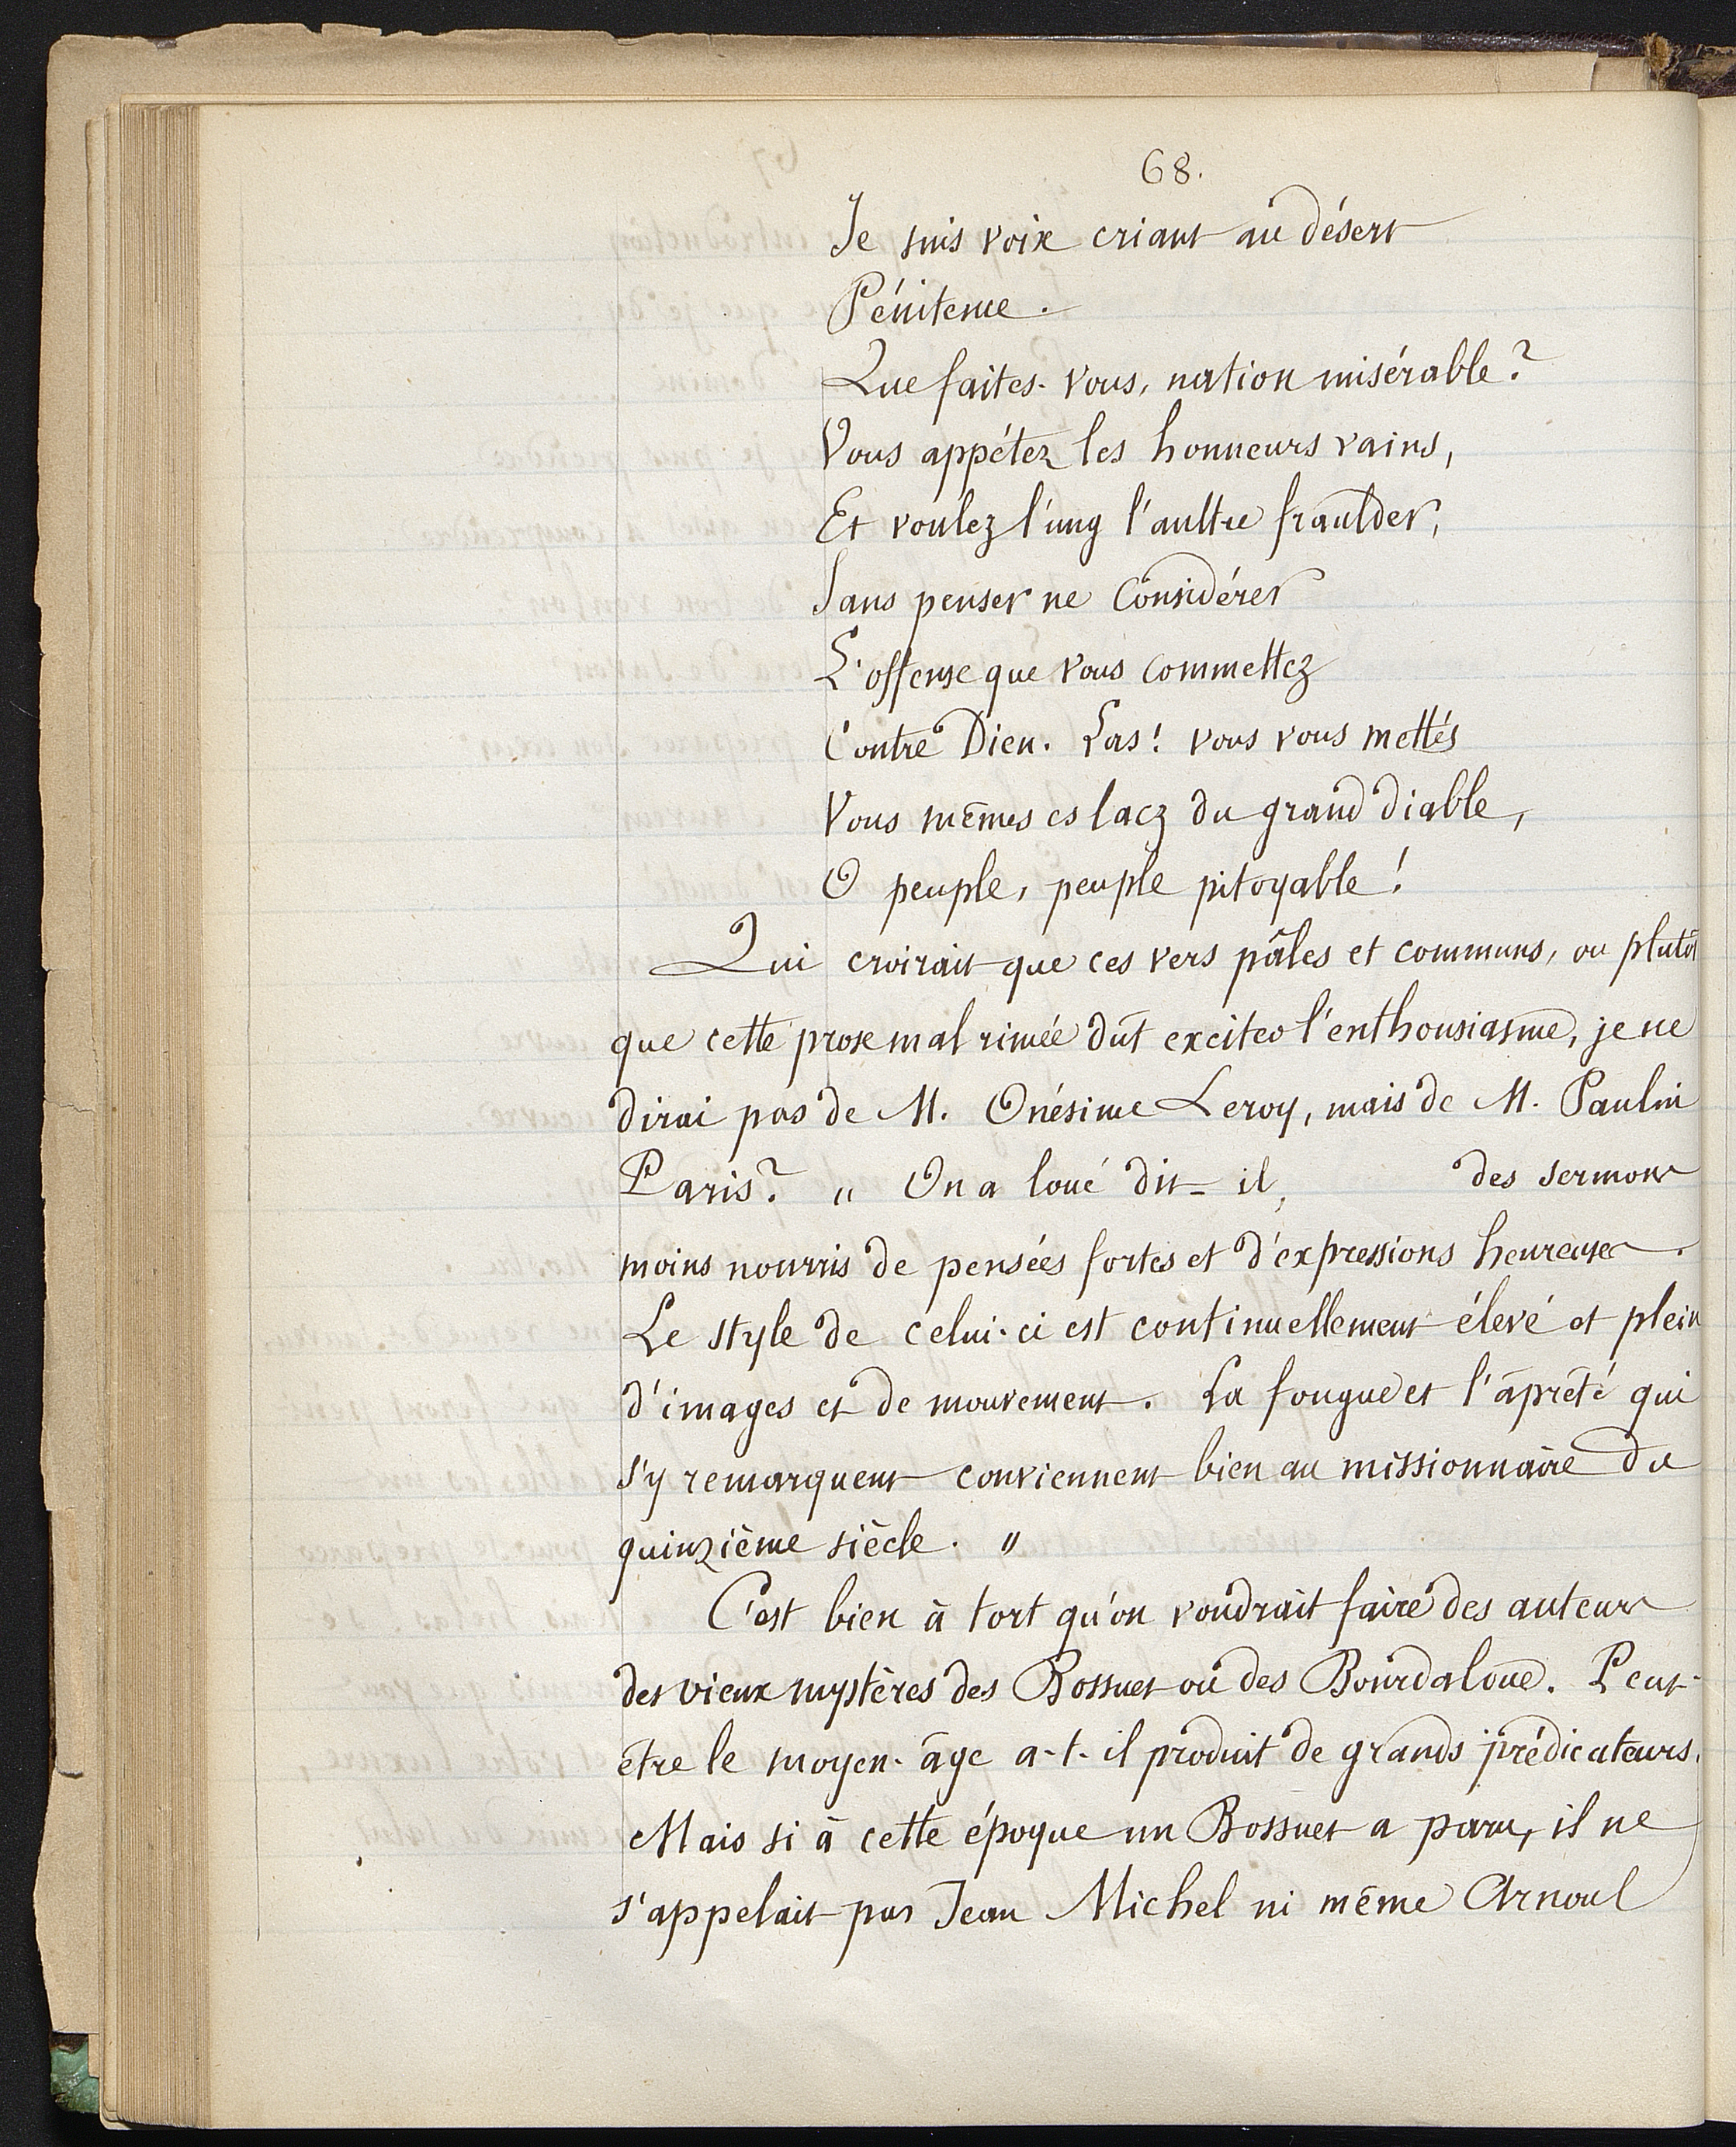 68.
Je suis voix criant au désert
Pénitence.
Que faites-vous, nation misérable?
Vous appétez les honneurs vains,
Et voulez l'ung l'aultre fraulder,
Sans penser ne considérer
L'offense que vous commettez
Contre Dieu. Las! vous vous mettés
Vous mêmes es lacz du grand diable,
O peuple, peuple pitoyable!
Qui croirait que ces vers pâles et communs, ou plutôt
que cette prose mal rimée dût exciter l'enthousiasme, je ne
dirai pas de M. Onésime Leroy, mais de M. Paulin
Paris? " On a loué dit-il, des sermons
moins nourris de pensées fortes et d'expressions heureuses.
Le style de celui-ci est continuellement élevé et plein
d'images et de mouvement. La fougue et l'âpreté qui
s'y remarquent conviennent bien au missionnaire du
quinzième siècle. "
C'est bien à tort qu'on voudrait faire des auteurs
des vieux mystères des Bossuet ou des Bourdaloue. Peut-
être le moyen-âge a-t-il produit de grands prédicateurs.
Mais si à cette époque un Bossuet a paru, il ne
s'appelait pas Jean Michel ni même Arnoul